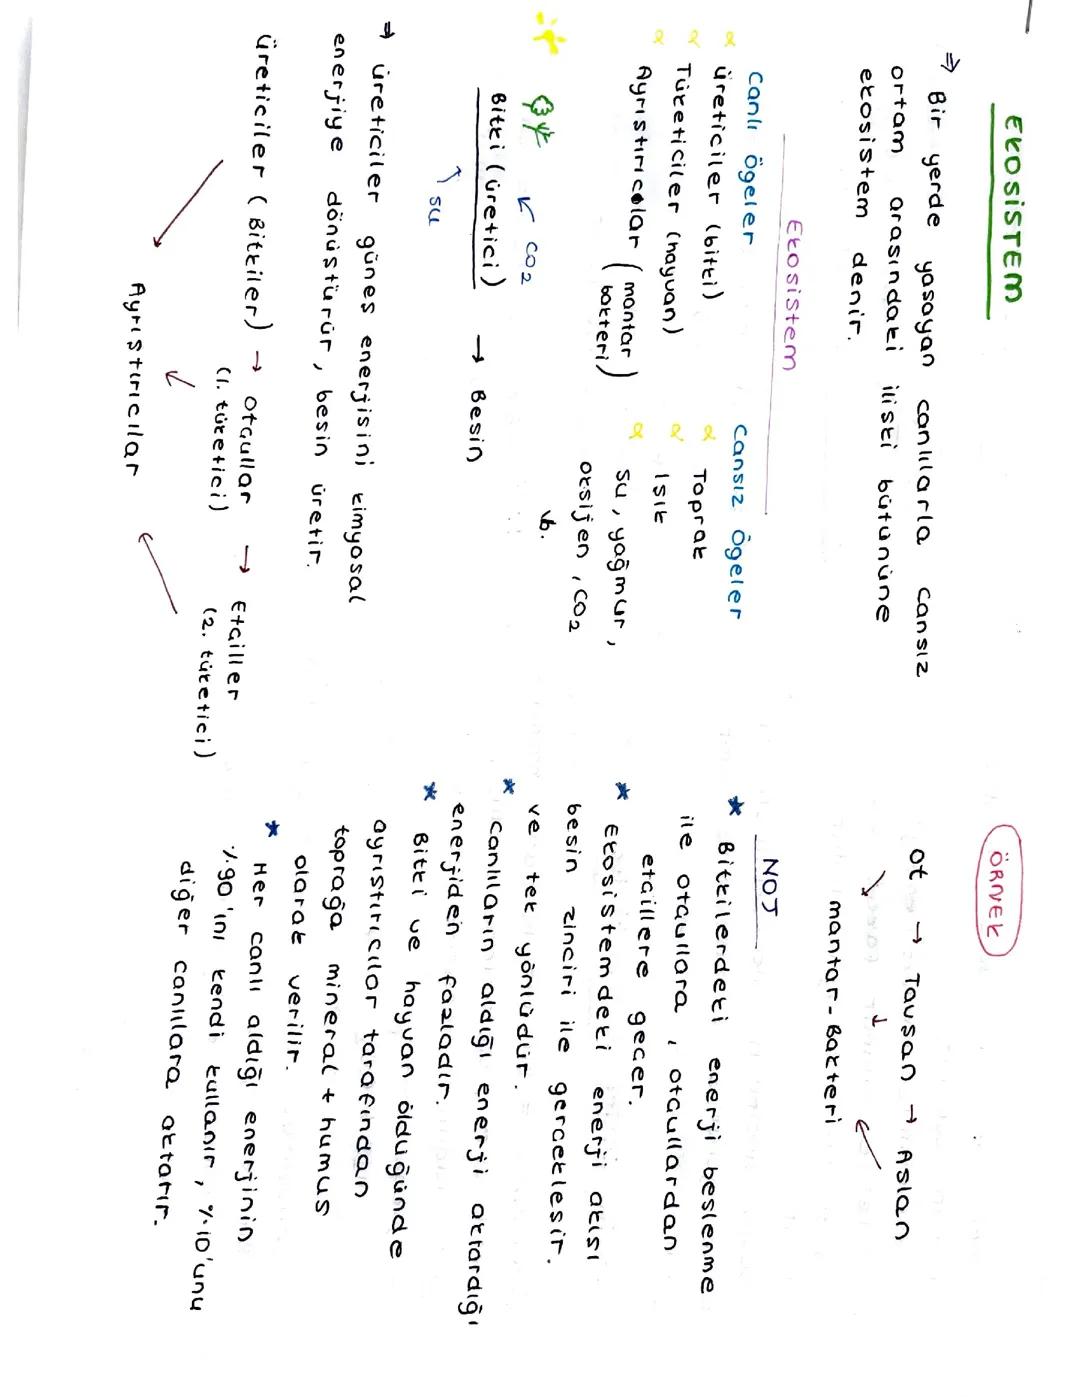 EKOSİSTEM
⇒ Bir yerde yaşayan canlılarla cansız
ortam arasındaki ilişki bütününe
ekosistem denir.
Ekosistem
Canlı Ögeler
Üreticiler (bitki)
Tüketiciler (hayvan)
Ayrıştırıcılar (mantar
bakteri)
Cansız Ögeler
Toprak
Işık
Su, yağmur,
oksijen, CO2
vb.
← CO2
Bitki (üretici) → Besin
↑ su
→ Üreticiler güneş enerjisini kimyasal
enerjiye dönüştürür, besin üretir.
Üreticiler (Bitkiler) → Otçullar → Etçiller
(1. tüketici)
(2. tüketici)
Ayrıştırıcılar
ÖRNEK
Ot → Tavşan → Aslan
mantar - Bakteri
NOT
* Bitkilerdeki enerji beslenme
ile otçullara, otçullardan
etçillere geçer.
* Ekosistemdeki enerji akışı
besin zinciri ile gerçekleşir.
ve tek yönlüdür.
* Canlıların aldığı enerji aktardığı
enerjiden fazladır.
* Bitki ve hayvan öldüğünde
ayrıştırıcılar tarafından
toprağa mineral + humus
olarak verilir.
* Her canlı aldığı enerjinin
%90'ını kendi kullanır, %10'unu
diğer canlılara aktarır.